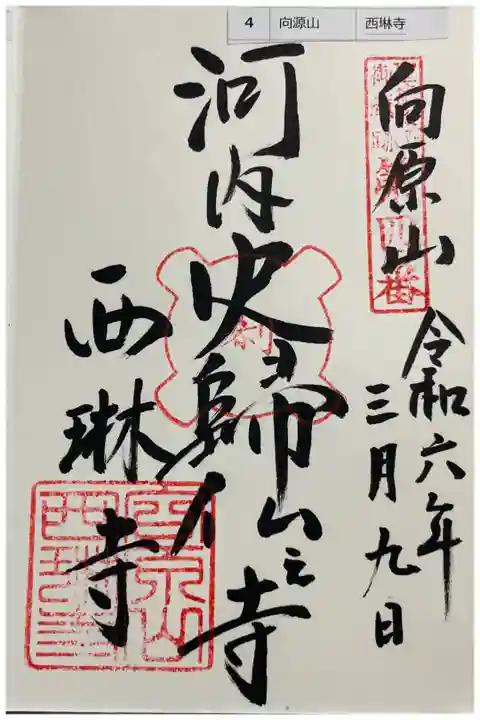 4 向源山 西琳寺
向原山
令和六年
三月九日
河内史歸人之寺
西琳寺